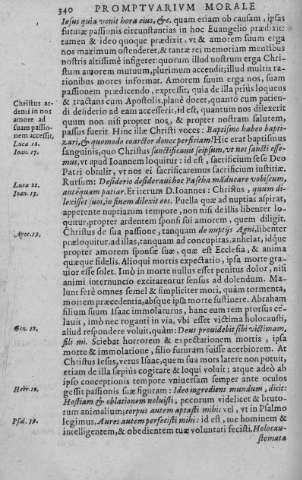 340 PROMPTVARIVM MORALE
Iesus quia venit hora eius, &c. quam etiam ob causam, ipsas
futuræ passionis circunstantias in hoc Euangelio prædicit:
tamen & ideo quoque prædixit, vt & amorem suum erga
nos maximum ostenderet, & tantæ rei memoriam mentibus
nostris altissimè infigeret: quorum illud nostrum erga Chri-
stum amorem mutuum, plurimum accendit, illud multis ra-
tionibus mores informat. Amorem suum erga nos, suam
passionem prædicendo, expressit, quia de illa prius loquens
& tractans cum Apostolis, planè docet, quanto cum patien-
di desiderio ad eam accesserit, id est, quantum nos dilexerit
quum non nisi propter nos, & propter nostram salutem,
passus fuerit. Hinc illæ Christi voces: Baptismo habeo bapti-
zari, & quomodo coarctor donec perficiam! Hic erat baptismus
sanguinis, quo Christus sanctificauit seipsum, vt nos sancti esse-
mus, vt apud Ioannem loquitur: id est, sacrificium sese Deo
Patri obtulit, vt nos ei sacrificaremur sacrificium iustitiæ.
Rursum: Desiderio desideraui hoc Pascha māducare vobiscum,
antequam patiar. Et iterum D. Ioannes: Christus, quum di-
lexisset suos, in finem dilexit eos. Puella quæ ad nuptias aspirat,
appetente nuptiarum tempore, non nisi de illis libenter lo-
quitur, propter ardentem sponsi sui amorem, quem diligit.
Christus de sua passione, tanquam de nuptijs Agni, libenter
præloquitur. ad illas, tanquam ad concupitas, anhelat, idque
propter amorem sponsæ suæ, quæ est Ecclesia, & anima
quæque fidelis. Alioqui mortis expectatio, ipsa morte gra-
uior esse solet. Imò in morte nullus esset penitus dolor, nisi
animi internuncio excitarentur sensus ad dolendum. Ma-
lunt ferè omnes semel & simpliciter mori, quàm tormenta,
mortem præcedentia, absque ipsa morte sustinere. Abraham
filium suum Isaac immolaturus, hanc eum rem prorsus ce-
lauit, imò nec roganti in via, vbi esset victima holocausti,
aliud respondere voluit, quàm: Deus prouidebit sibi victimam,
fili mi. Sciebat horrorem & expectationem mortis, ipsa
morte & immolatione, filio futuram fuisse acerbiorem. At
Christus Iesus, verus Isaac, quem sua mors latere non potuit,
etiam de illa sæpius cogitare & loqui voluit: atque adeò ab
ipso conceptionis tempore vniuersam semper ante oculos
gessit passionis suæ figuram: Ideo ingrediens mundum, dicit:
Hostiam & oblationem noluisti, pecorum videlicet & bruto-
rum animalium; corpus autem aptasti mihi: vel, vt in Psalmo
legimus, Aures autem perfecisti mihi: id est, me hominem &
intelligentem, & obedientem tuæ voluntati fecisti. Holocau-
stomata
Christus ar-
denti in nos
amore ad
suam passio-
nem accessit.
Luca 12.
Ioan. 17.
Luca 22.
Ioan. 13.
Apoc. 19.
Gen. 22.
Hebr. 10.
Psal. 39.